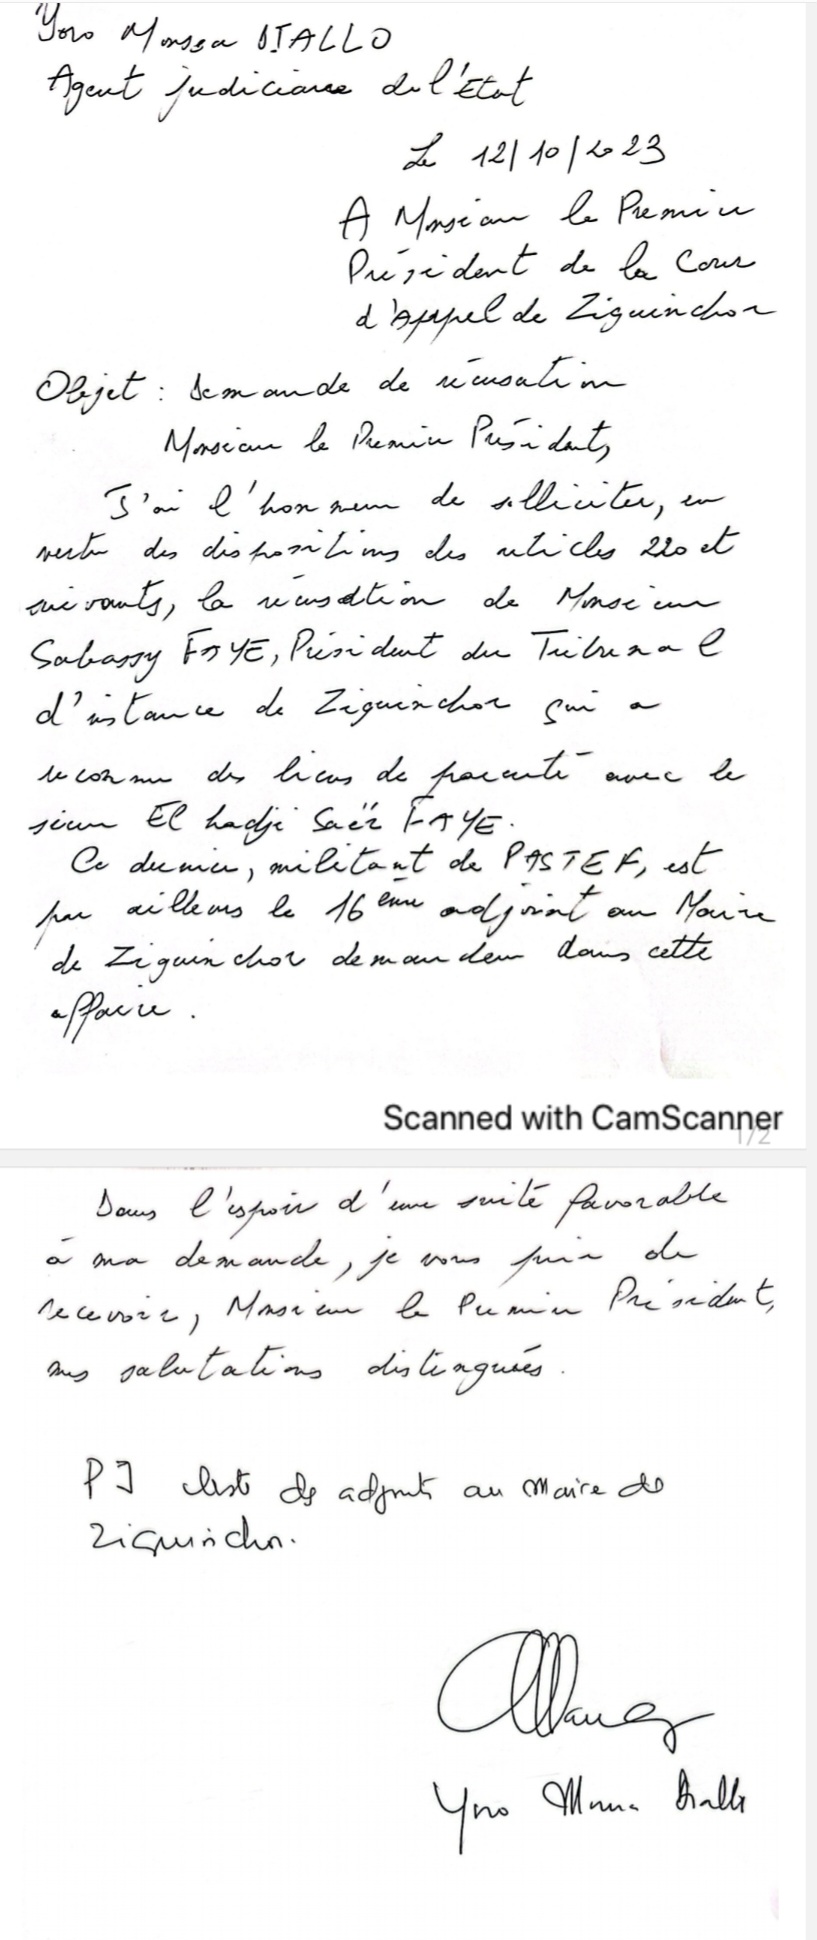 Yoro Moussa DIALLO
Agent judiciaire de l'Etat
Le 12/10/2023
A Monsieur le Premier
Président de la Cour
d'Appel de Ziguinchor
Objet : Demande de récusation
Monsieur le Premier Président,
J'ai l'honneur de solliciter, en
vertu des dispositions des articles 220 et
suivants, la récusation de Monsieur
Sabassy FAYE, Président du Tribunal
d'instance de Ziguinchor qui a
reconnu des liens de parenté avec le
sieur El hadji Saër FAYE.
Ce dernier, militant de PASTEF, est
par ailleurs le 16 ème adjoint au Maire
de Ziguinchor demandeur dans cette
affaire.
Scanned with CamScanner
1/2
Dans l'espoir d'une suite favorable
à ma demande, je vous prie de
recevoir, Monsieur le Premier Président,
mes salutations distinguées.
PJ liste des adjoints au maire de
Ziguinchor.
Yoro Moussa Diallo